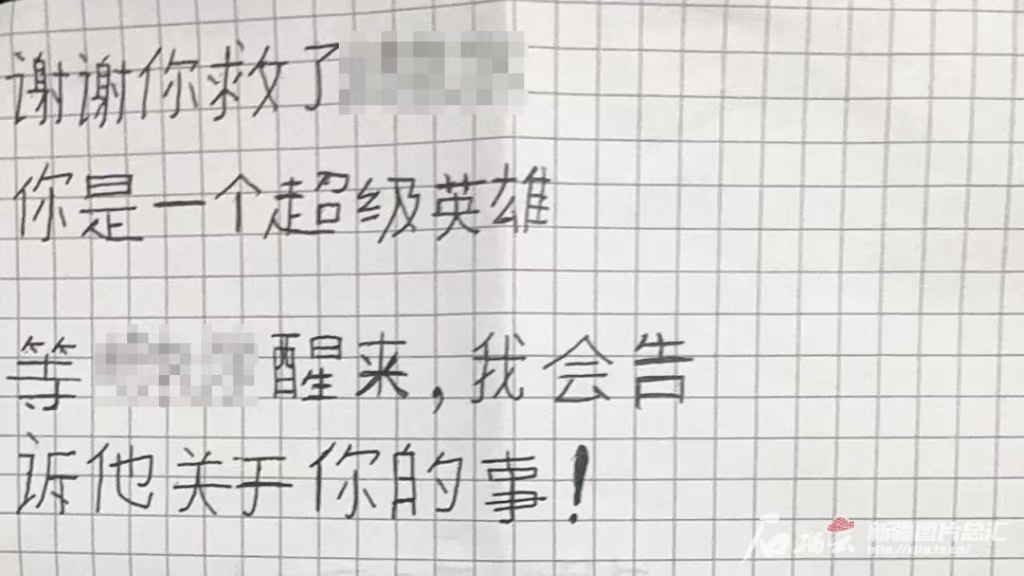 谢谢你救了
你是一个超级英雄
等 醒来,我会告
诉他关于你的事!